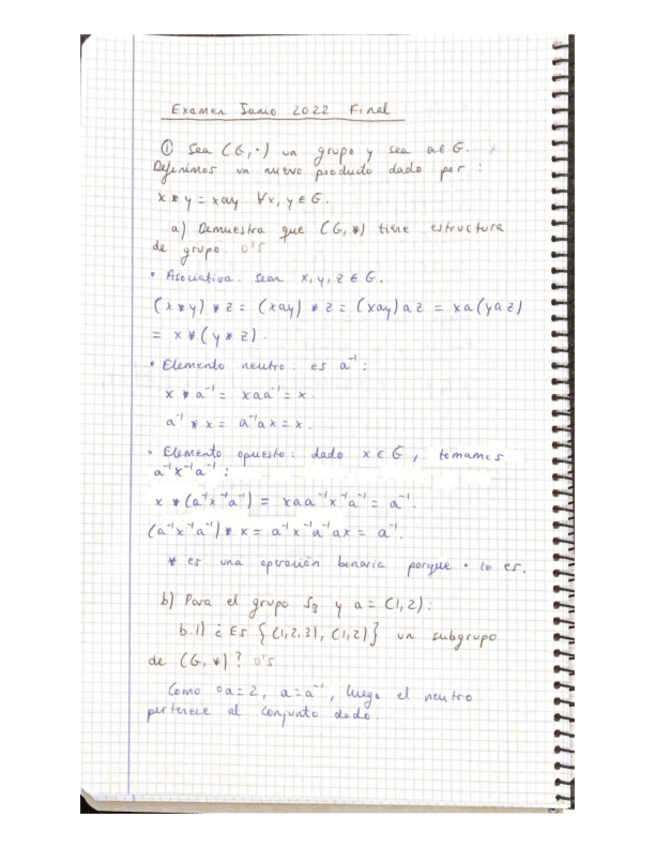 Examen Junio 2022 Final
① Sea (G,·) un grupo y sea a∈G.
Definimos un nuevo producto dado por:
x*y = xay ∀x, y ∈ G.
a) Demuestra que (G,*) tiene estructura
de grupo. 0'5
• Asociativa. Sean x, y, z ∈ G.
(x*y)*z = (xay)*z = (xay)az = xa(yaz)
= x*(y*z).
• Elemento neutro: es a⁻¹:
x*a⁻¹ = xaa⁻¹ = x.
a⁻¹*x = a⁻¹ax = x.
• Elemento opuesto: dado x ∈ G, tomamos
a⁻¹x⁻¹a⁻¹:
x*(a⁻¹x⁻¹a⁻¹) = xaa⁻¹x⁻¹a⁻¹ = a⁻¹.
(a⁻¹x⁻¹a⁻¹)*x = a⁻¹x⁻¹a⁻¹ax = a⁻¹.
* es una operación binaria porque · lo es.
b) Para el grupo S₃ y a = (1,2):
b.1) ¿Es {(1,2,3), (1,2)} un subgrupo
de (G,*)? 0'5
Como oa=2, a=a⁻¹, luego el neutro
pertenece al conjunto dado.